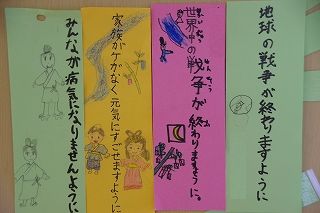 地球の戦争が終わりますように
世界中の戦争が終わりますように。
家族がケガなく元気にすごせますように
みんなが病気になりませんように